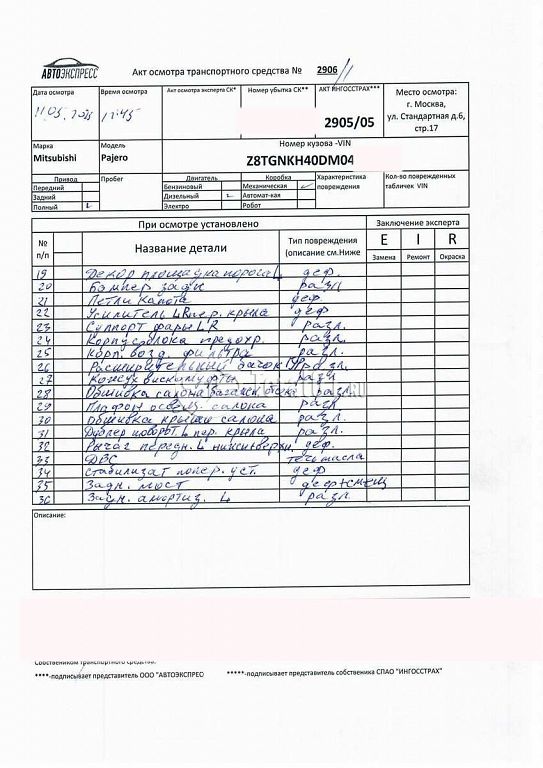 АВТОЭКСПРЕСС
Акт осмотра транспортного средства № 2906/1
Дата осмотра Время осмотра Акт осмотра эксперта СК* Номер убытка СК** АКТ ИНГОССТРАХ*** Место осмотра:
г. Москва,
ул. Стандартная д.6,
стр.17
11.05. 11:45
2905/05
Марка Модель Номер кузова -VIN
Mitsubishi Pajero Z8TGNKH40DM04
Привод Пробег Двигатель Коробка Характеристика повреждения Кол-во поврежденных табличек VIN
Передний Бензиновый Механическая
Задний Дизельный Автомат-кая
Полный Электро Робот
При осмотре установлено Заключение эксперта
№ п/п Название детали Тип повреждения (описание см.Ниже E I R
Замена Ремонт Окраска
19 Декор площадка порога L деф.
20 Бампер задн разл
21 Петли капота деф
22 Усилитель LR пер. крыла деф
23 Суппорт фары L R разл.
24 Корпус блока предохр. разл.
25 корп. возд. фильтра разл.
26 Расширительный бачок разл.
27 Кожух вискомуфты разл
28 Обшивка салона багажн. разл.
29 Плафон освещ. салона разл
30 обшивка крыши салона разл.
31 Дублер поворот. L пер. крыла разл.
32 Рычаг передн. L нижн деф.
33 ДВС течь масла
34 стабилизат попер. уст. деф
35 Задн. мост деф+смещ
36 Задн. амортиз. L разл.
Описание:
Собственником транспортного средства.
****-подписывает представитель ООО "АВТОЭКСПРЕС *****-подписывает представитель собственика СПАО "ИНГОССТРАХ"